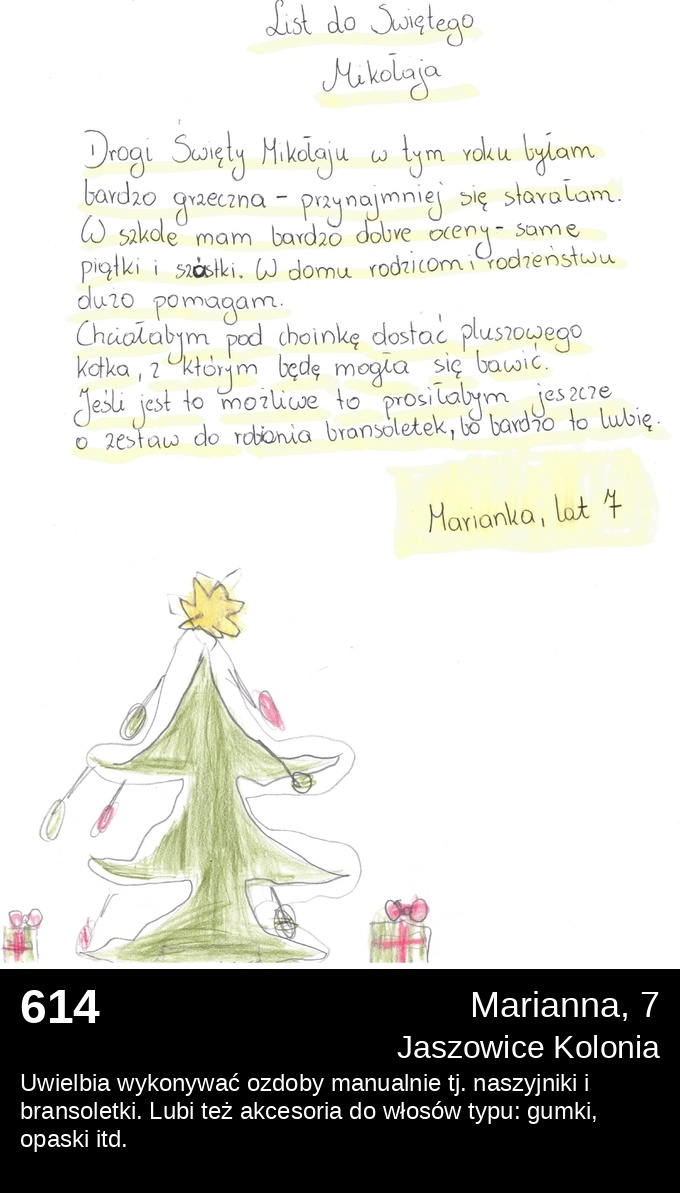 List do Świętego
Mikołaja
Drogi Święty Mikołaju w tym roku byłam
bardzo grzeczna - przynajmniej się starałam.
W szkole mam bardzo dobre oceny - same
piątki i szóstki. W domu rodzicom i rodzeństwu
dużo pomagam.
Chciałabym pod choinkę dostać pluszowego
kotka, z którym będę mogła się bawić.
Jeśli jest to możliwe to prosiłabym jeszcze
o zestaw do robienia bransoletek, bo bardzo to lubię.
Marianka, lat 7
614
Marianna, 7
Jaszowice Kolonia
Uwielbia wykonywać ozdoby manualnie tj. naszyjniki i
bransoletki. Lubi też akcesoria do włosów typu: gumki,
opaski itd.